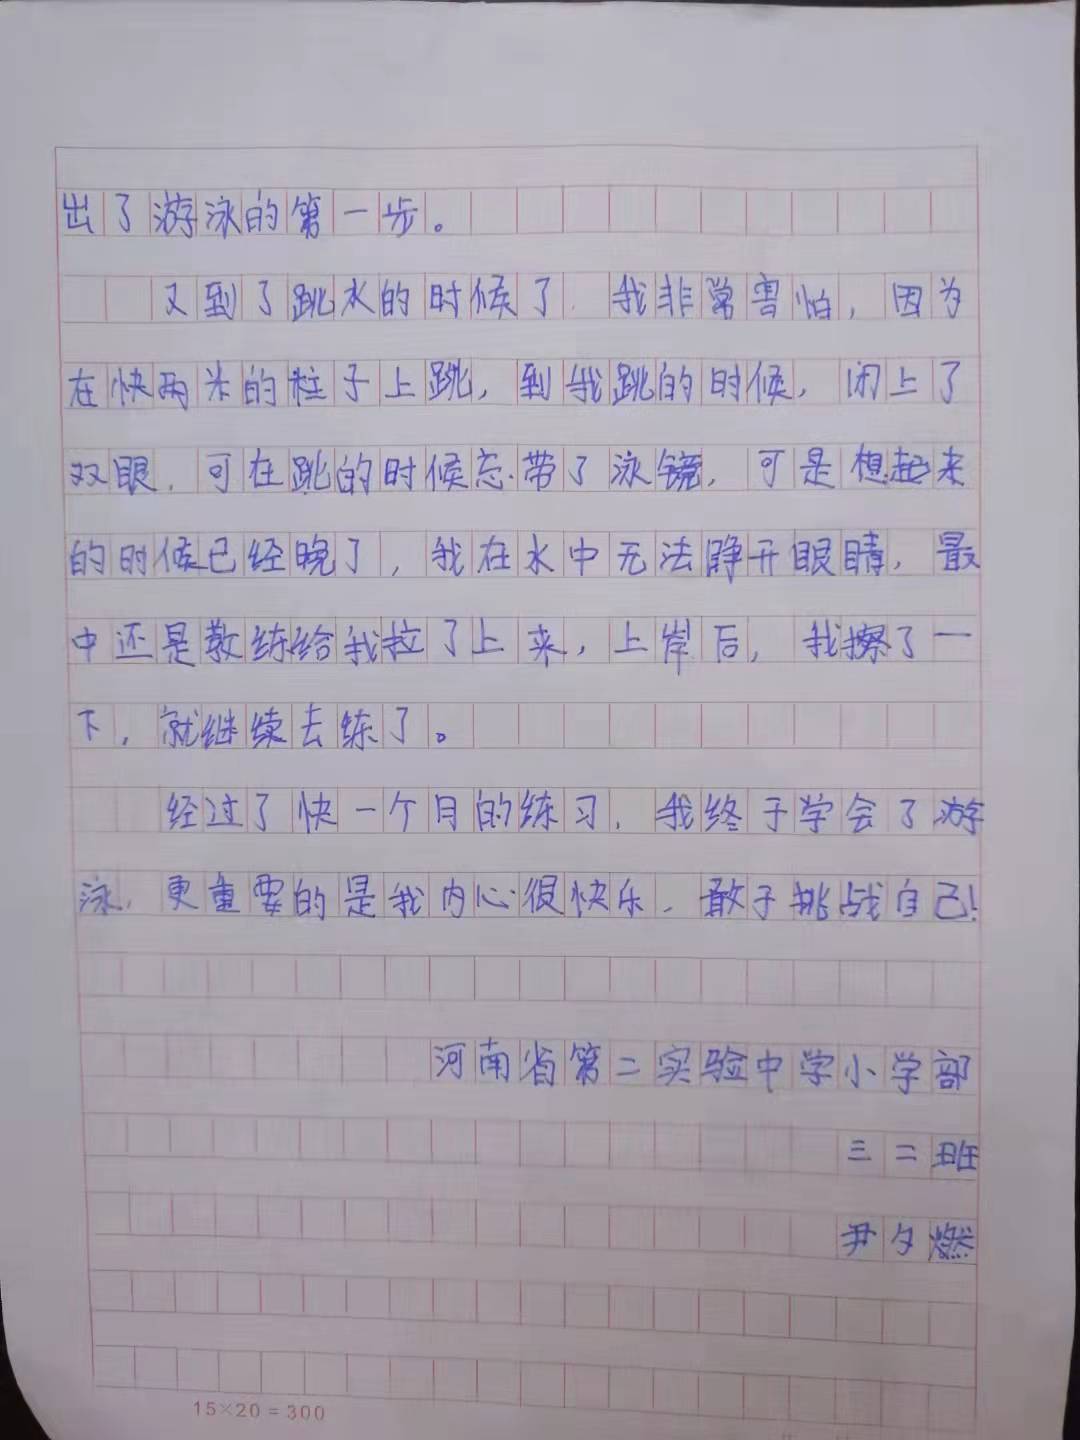 出了游泳的第一步。
又到了跳水的时候了，我非常害怕，因为
在快两米的柱子上跳，到我跳的时候，闭上了
双眼，可在跳的时候忘带了泳镜，可是想起来
的时候已经晚了，我在水中无法睁开眼睛，最
中还是教练给我拉了上来，上岸后，我擦了一
下，就继续去练了。
经过了快一个月的练习，我终于学会了游
泳，更重要的是我内心很快乐，敢于挑战自己！
河南省第二实验中学小学部
三二班
尹夕燃
15×20=300